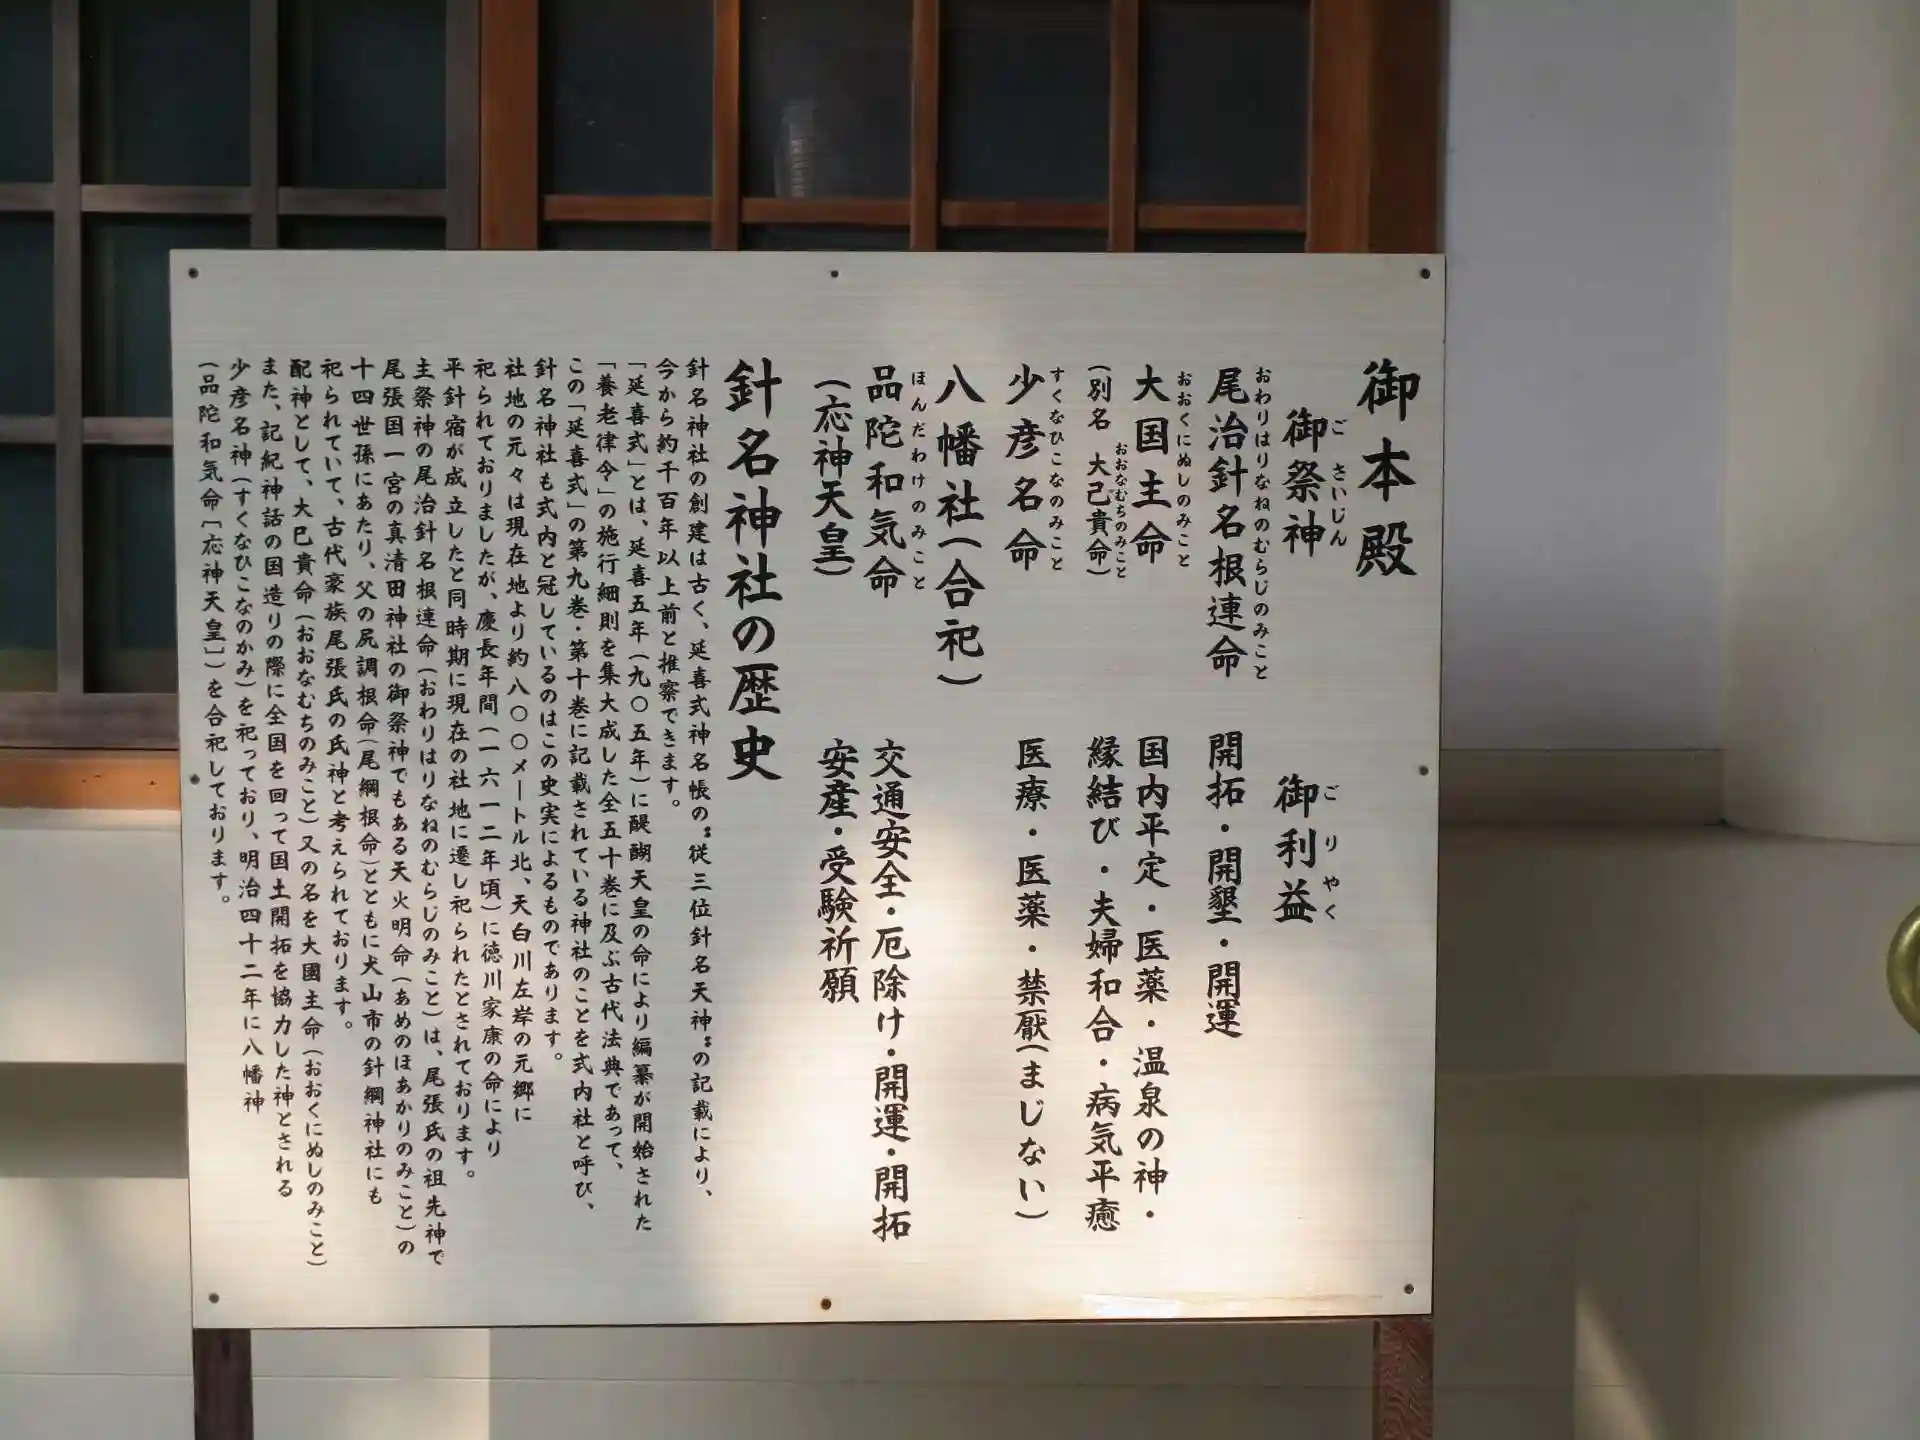 御本殿
御祭神
ごさいじん
御利益
ごりやく
尾治針名根連命
おわりはりなねのむらじのみこと
開拓・開墾・開運
大国主命
おおくにぬしのみこと
国内平定・医薬・温泉の神・
(別名 大己貴命)
おおなむちのみこと
縁結び・夫婦和合・病気平癒
少彦名命
すくなひこなのみこと
医療・医薬・禁厭(まじない)
八幡社(合祀)
品陀和気命
ほんだわけのみこと
交通安全・厄除け・開運・開拓
(応神天皇)
安産・受験祈願
針名神社の歴史
針名神社の創建は古く、延喜式神名帳の〝従三位針名天神〟の記載により、
今から約千百年以上前と推察できます。
「延喜式」とは、延喜五年(九〇五年)に醍醐天皇の命により編纂が開始された
「養老律令」の施行細則を集大成した全五十巻に及ぶ古代法典であって、
この「延喜式」の第九巻・第十巻に記載されている神社のことを式内社と呼び、
針名神社も式内と冠しているのはこの史実によるものであります。
社地の元々は現在地より約八〇〇メートル北、天白川左岸の元郷に
祀られておりましたが、慶長年間(一六一二年頃)に徳川家康の命により
平針宿が成立したと同時期に現在の社地に遷し祀られたとされております。
主祭神の尾治針名根連命(おわりはりなねのむらじのみこと)は、尾張氏の祖先神で
尾張国一宮の真清田神社の御祭神でもある天火明命(あめのほあかりのみこと)の
十四世孫にあたり、父の尻調根命(尾綱根命)とともに犬山市の針綱神社にも
祀られていて、古代豪族尾張氏の氏神と考えられております。
配神として、大巳貴命(おおなむちのみこと)又の名を大國主命(おおくにぬしのみこと)
また、記紀神話の国造りの際に全国を回って国土開拓を協力した神とされる
少彦名神(すくなひこなのかみ)を祀っており、明治四十二年に八幡神
(品陀和気命〔応神天皇〕)を合祀しております。